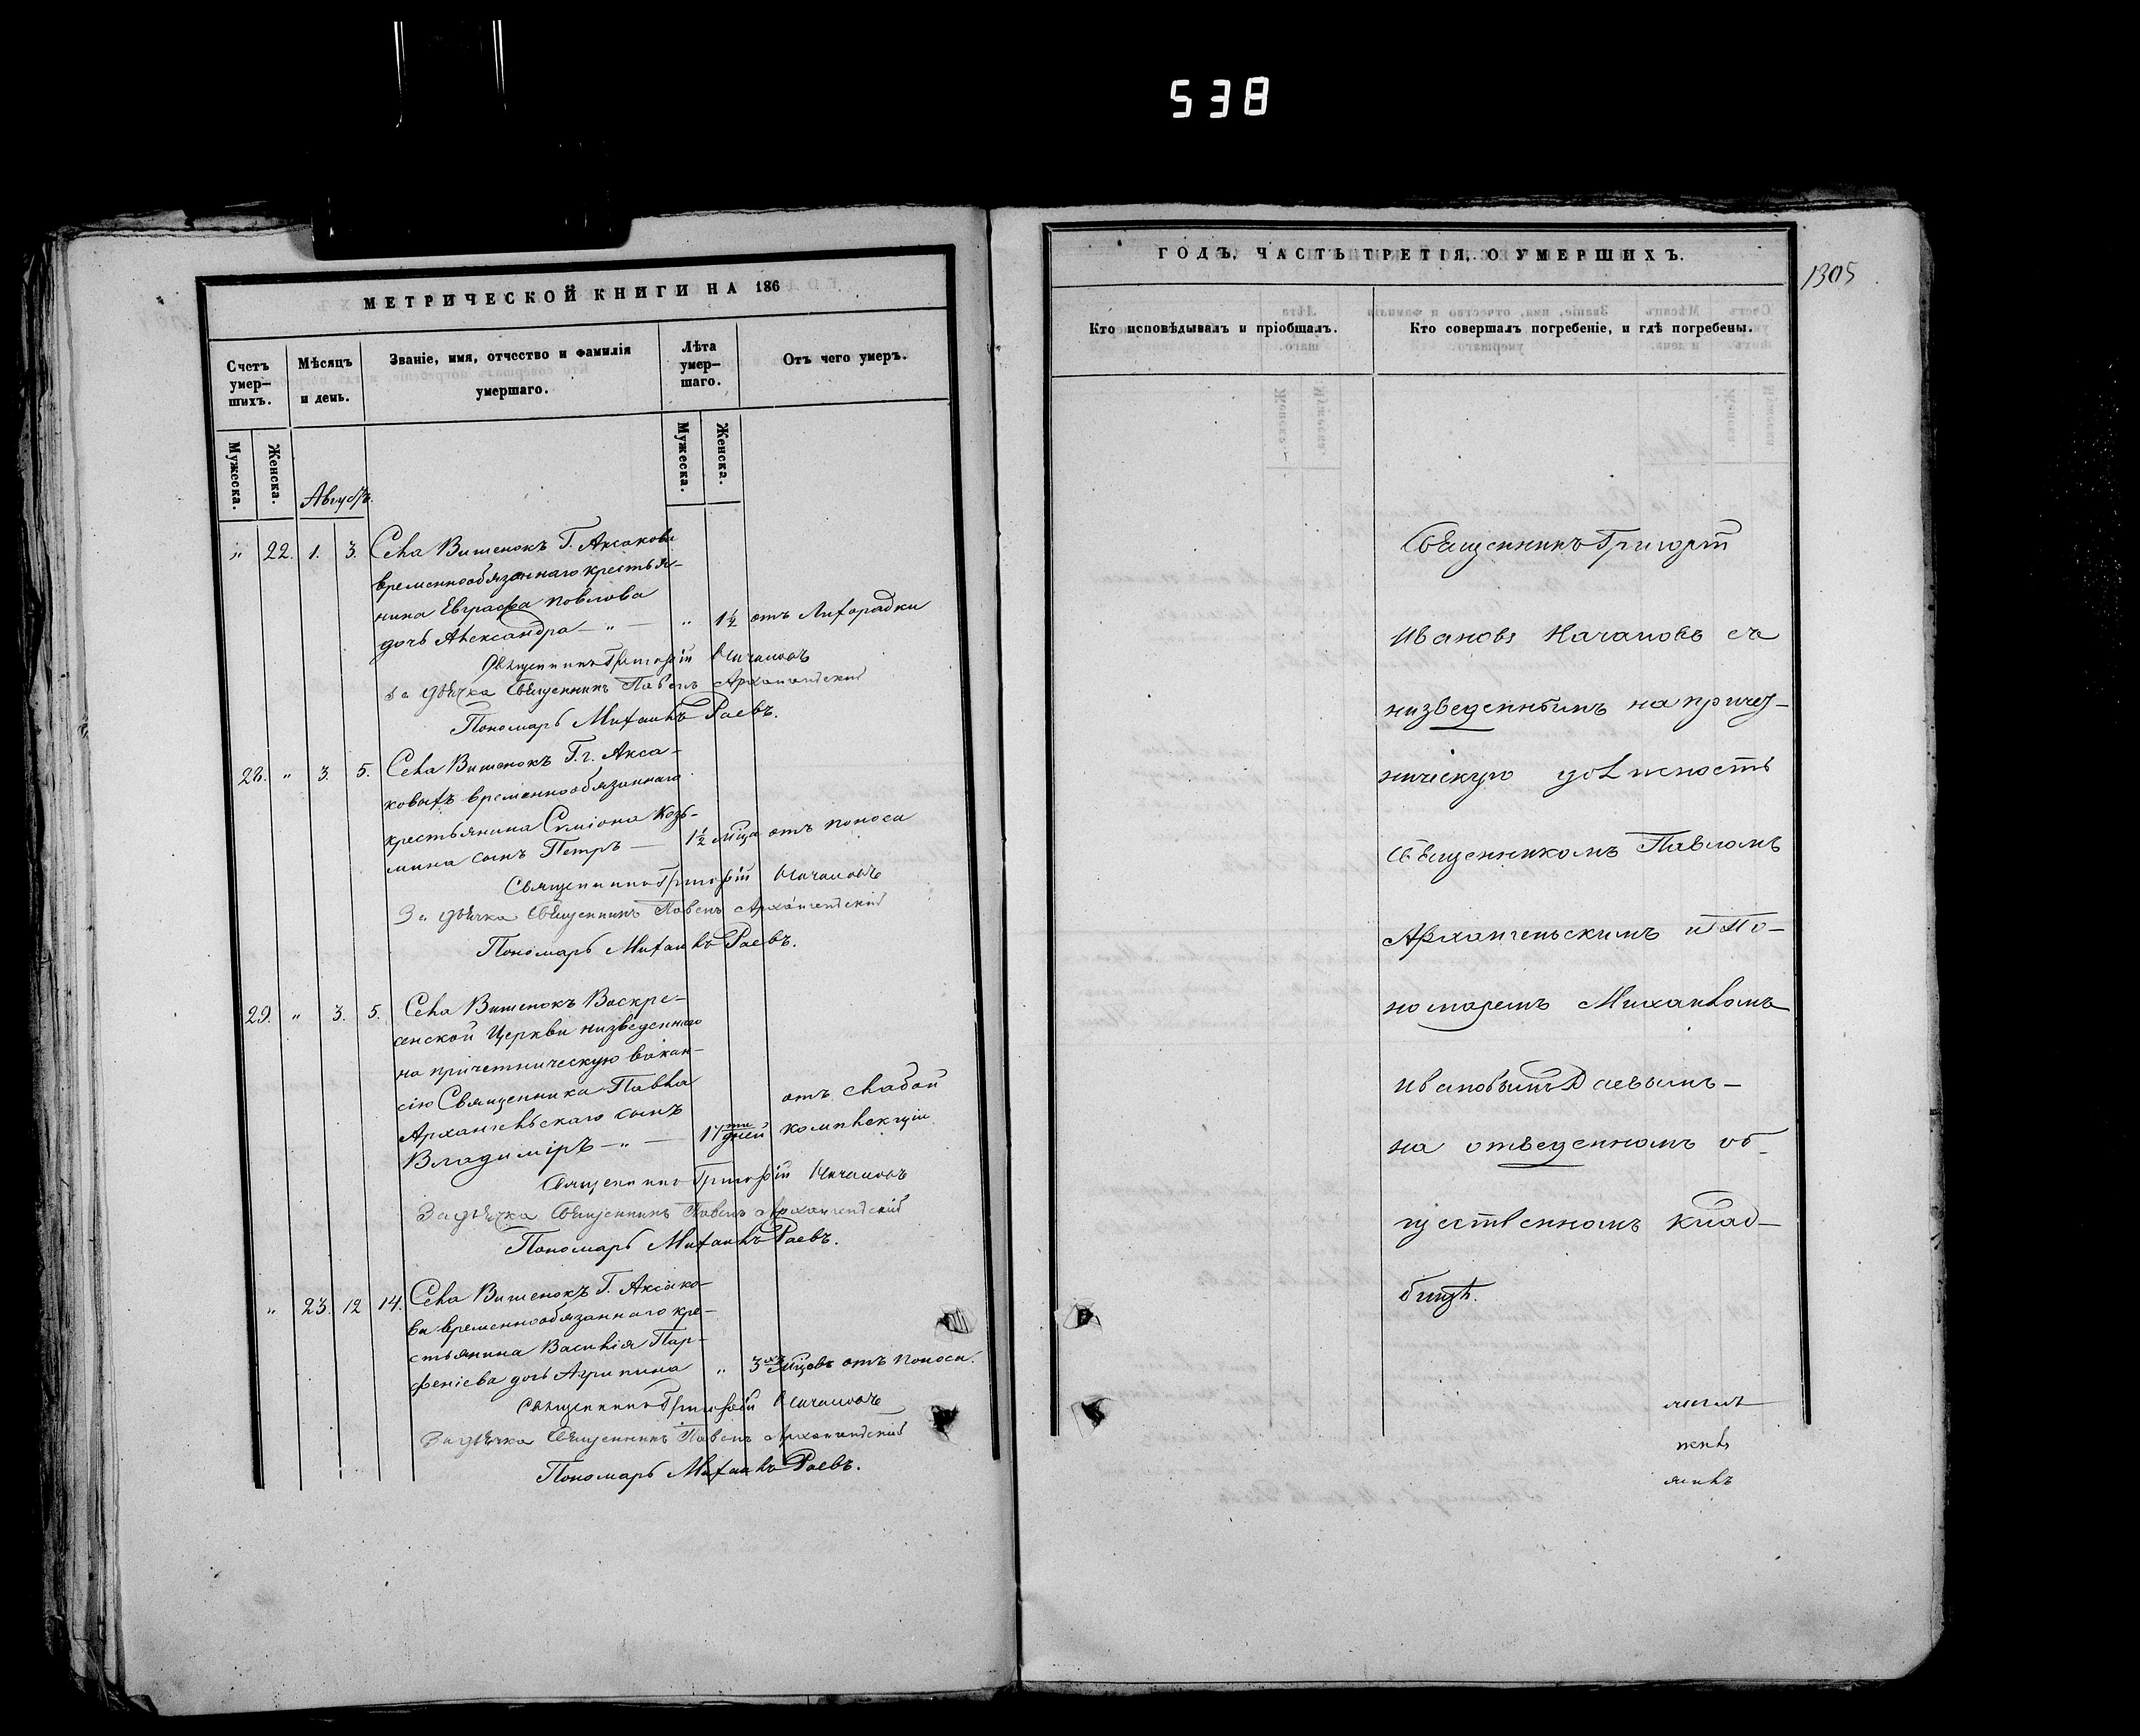 538
МЕТРИЧЕСКОЙ КНИГИ НА 186
Счетъ умер- шихъ.
Мѣсяцъ и день.
Званіе, имя, отчество и фамилія умершаго.
Лѣта умер- шаго.
Отъ чего умеръ.
Мужеска.
Женска.
Мужеска.
Женска.
Августъ.
„ 22. 1. 3. Села Вишенокъ Г. Аксакова
временнообязаннаго крестья-
нина Евграфа Павлова
дочь Александра — „ — „ 1½ отъ Лихорадки
Священникъ Григорій Началовъ
За дьячка Священникъ Павелъ Архангельскій
Пономарь Михаилъ Раевъ.
28. „ 3. 5. Села Вишенокъ Г. г. Акса-
ковыхъ временнообязаннаго
крестьянина Симіона Козь-
мина сынъ Петръ — 1½ мѣца отъ поноса
Священникъ Григорій Началовъ
За дьячка Священникъ Павелъ Архангельскій
Пономарь Михаилъ Раевъ.
29. „ 3. 5. Села Вишенокъ Воскре-
сенской Церкви низведеннаго
на причетническую вакан-
сію Священника Павла
Архангельскаго сынъ отъ слабой
Владиміръ — „ — 17ти дней комплекціи
Священникъ Григорій Началовъ
За дьячка Священникъ Павелъ Архангельскій
Пономарь Михаилъ Раевъ.
„ 23. 12 14. Села Вишенокъ Г. Аксако-
ва временнообязаннаго кре-
стьянина Василія Пар-
фенісва дочь Агрипина „ 3хъ мѣцовъ отъ поноса.
Священникъ Григорій Началовъ
За дьячка Священникъ Павелъ Архангельскій
Пономарь Михаилъ Раевъ.
ГОДЪ, ЧАСТЬ ТРЕТІЯ, О УМЕРШИХЪ.
1305
Кто исповѣдывалъ и пріобщалъ.
Кто совершалъ погребеніе, и гдѣ погребены.
Священникъ Григорій
Ивановъ Началовъ съ
низведеннымъ на причет-
ническую должность
Священникомъ Павломъ
Архангельскимъ и По-
номаремъ Михаиломъ
Ивановымъ Раевымъ —
на отведенномъ об-
щественномъ клад-
бищѣ.